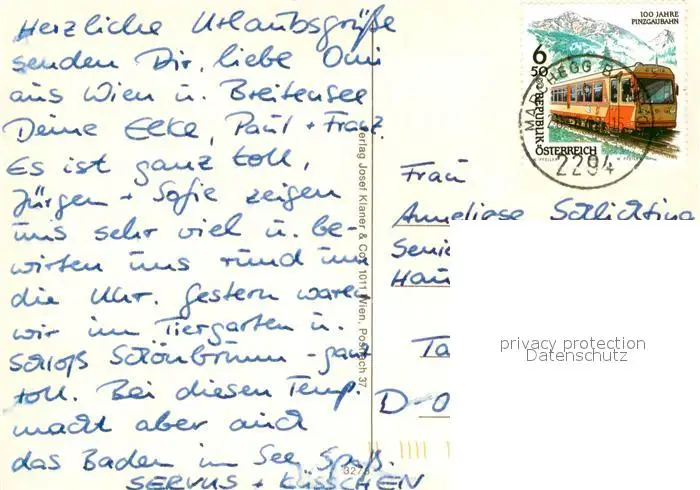 Herzliche Urlaubsgrüße
senden Dir, liebe Omi
aus Wien u. Breitensee
Deine Ecke, Paul + Franz.
Es ist ganz toll,
Jürgen + Sofie zeigen
uns sehr viel u. be-
wirten uns rund um
die Uhr. Gestern waren
wir im Tiergarten u.
Schloß Schönbrunn - ganz
toll. Bei diesen Temp.
macht aber auch
das Baden im See Spaß.
SERVUS + KÜSSCHEN
Verlag Josef Klaner & Co., 1011 Wien, Postfach 37
3273
100 JAHRE
PINZGAUBAHN
6
50
REPUBLIK
ÖSTERREICH
2294
Frau
Anneliese Schlichting
Senio
Hau
Ta
D-O
privacy protection
Datenschutz